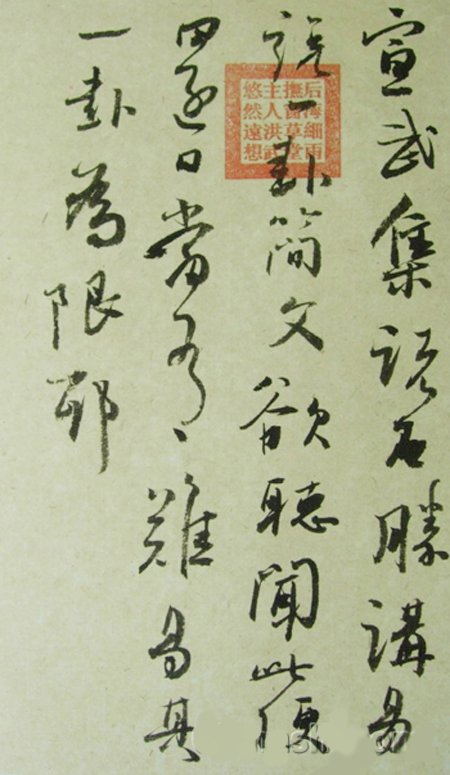 宣武集諸名勝講易
說一卦簡文欲聽聞此便
還曰當有難易其
一卦為限邪
后海細雨
撫窗草堂
主人洪武
悠然遠想